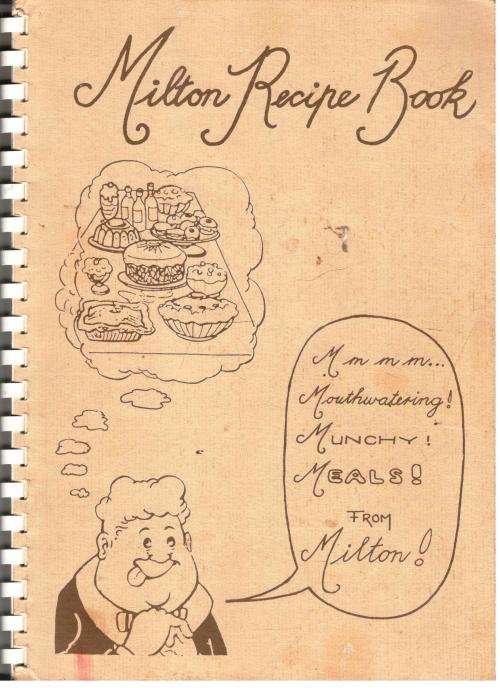 Milton Recipe Book
Mmmm...
Mouthwatering!
MUNCHY!
MEALS!
FROM
Milton!